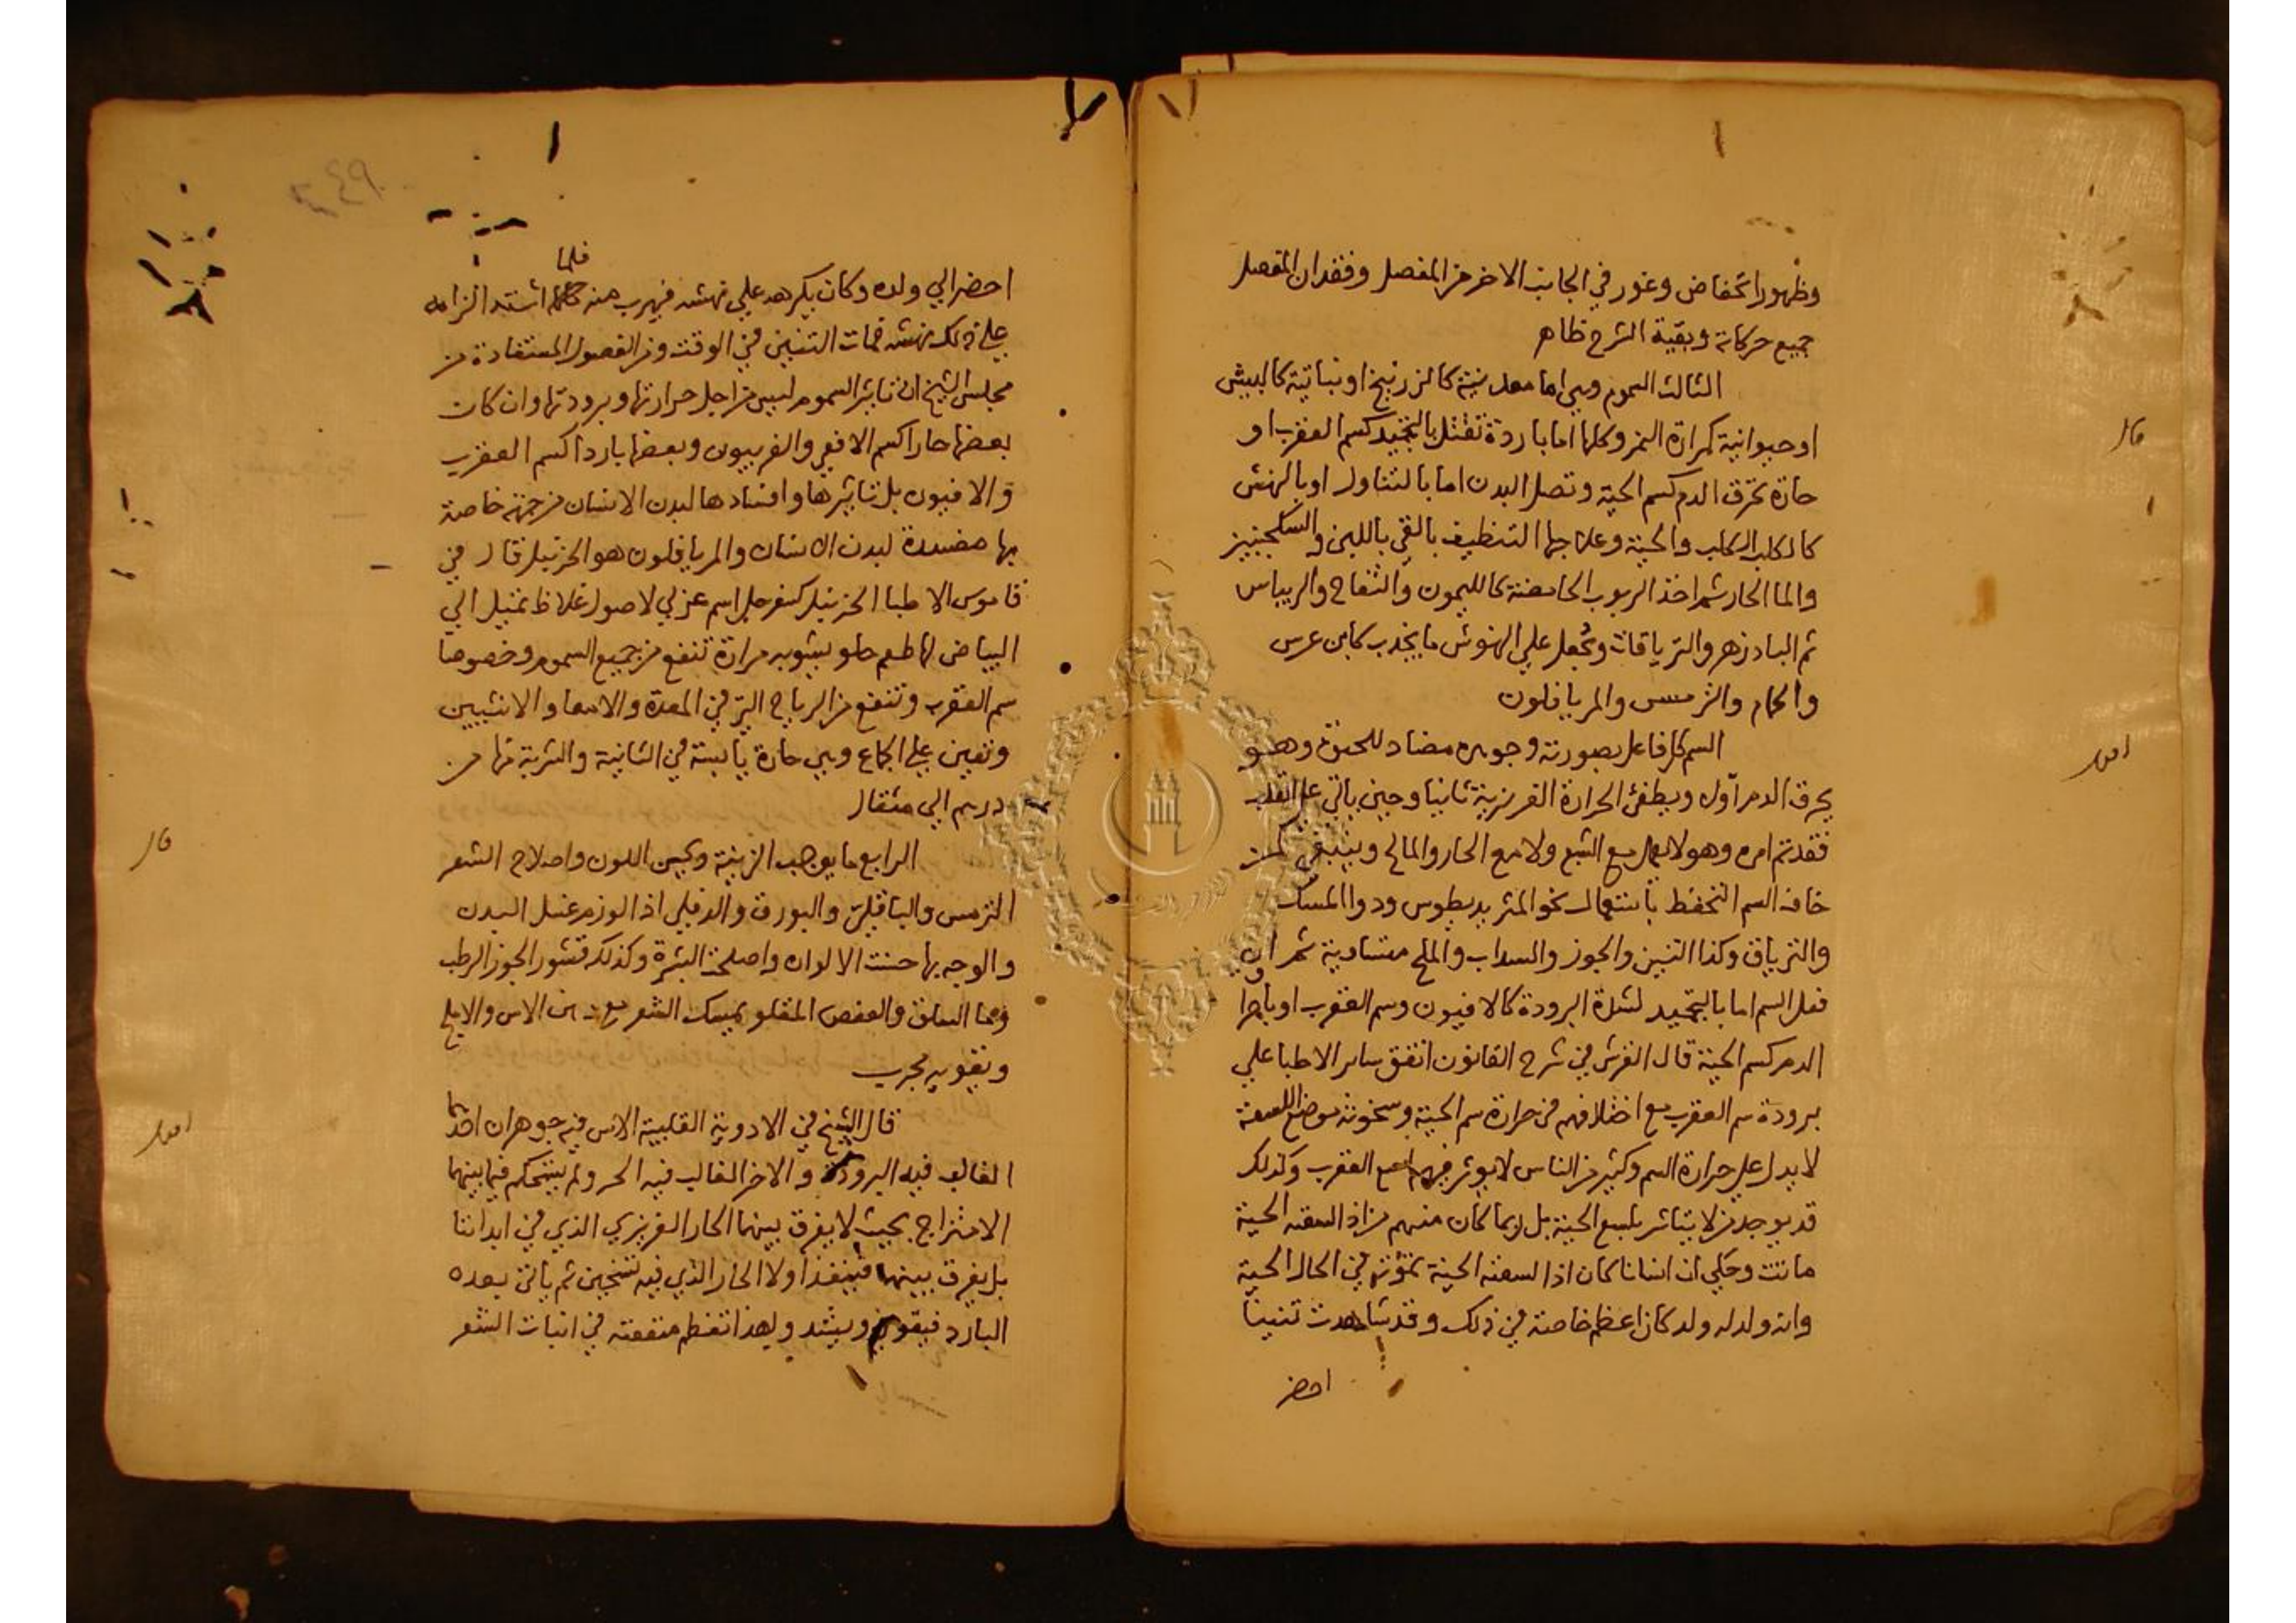 وظهور انخفاض وغور في الجانب الاخر من المفصل وفقدان المفصل
جميع حركاته وبقية الشرح ظاهر
الثالث السموم وهي اما معدنية كالزرنيخ او نباتية كالبيش
قال
او حيوانية كمرارة النمر وكلها اما باردة تقتل بالتجميد كسم العقرب او
حارة تحرق الدم كسم الحية وتصل البدن اما بالتناول او بالنهش
كالكلب الكلب والحية وعلاجها التنظيف بالقي باللبن والسكنجبين
والما الحار ثم اخذ الربوب الحامضة كالليمون والتفاح والريباس
ثم البادزهر والترياقات ويجعل علي النهوش ما يجذب كابن عرس
والحمام والترمس والمريافلون
السم كل فاعل بصورته وجوهره مضاد للحيوة وهو
اقول
يحرق الدم اولا ويطفئ الحرارة الغريزية ثانيا وحين ياتي علي القلب
فقد تم امره وهو لا يعمل مع الشبع ولا مع الحار والمالح وينبغي لمن
خاف السم التحفظ باستعمال نحو المثروديطوس ودوا المسك
والترياق وكذا التين والجوز والسداب والملح متساوية ثم ان
فعل السم اما بالتجميد لشدة البرودة كالافيون وسم العقرب او باحراق
الدم كسم الحية قال القرشي في شرح القانون اتفق ساير الاطبا علي
برودة سم العقرب مع اختلافهم في حرارة سم الحية وسخونة موضع اللسعة
لا يدل علي حرارة السم وكثير من الناس لا يوثر فيهم لسع العقرب وكذلك
قد يوجد من لا يتاثر بلسع الحية بل ربما كان منهم من اذا لسعته الحية
ماتت وحكي ان انسانا كان اذا لسعته الحية تموت في الحال الحية
وانه ولد له ولد كان اعظم خاصة في ذلك وقد شاهدت تنينا
احضر
احضر الي ولده وكان يكرهه علي نهشه فيهرب منه فلما اشتد الزامه
علي ذلك نهشه فمات التنين في الوقت وفي الفصول المستفادة من
مجلس الشيخ ان تاثير السموم ليس من اجل حرارتها وبرودتها وان كان
بعضها حارا كسم الافعي والفربيون وبعضها باردا كسم العقرب
والافيون بل تاثيرها وافسادها لبدن الانسان من جهة خاصة
بها مفسدة لبدن الانسان والمريافلون هو الحزنبل قال في
قاموس الاطبا الحزنبل كسفرجل اسم عربي لاصول غلاظ تميل الي
البياض لها طعم حلو يشوبه مرارة تنفع من جميع السموم وخصوصا
سم العقرب وتنفع من الرياح التي في المعدة والامعا والانثيين
وتعين علي الجماع وهي حارة يابسة في الثانية والشربة منها من
درهم الي مثقال
الرابع ما يوجب الزينة وتحسين اللون واصلاح الشعر
قال
الترمس والباقلي والبورق والدفلي اذا لوزم غسل البدن
والوجه بها حسنت الالوان واصلحت البشرة وكذلك قشور الجوز الرطب
وما السلق والعفص المقلو يمسك الشعر مع دهن الاس والاملج
ويقويه مجرب
قال الشيخ في الادوية القلبية الاس فيه جوهران احدهما
اقول
الغالب فيه البرودة والاخر الغالب فيه الحر ولم يستحكم فيما بينهما
الامتزاج بحيث لا يفرق بينهما الحار الغريزي الذي في ابداننا
بل يفرق بينهما فينفذ اولا الحار الذي فيه تسخين ثم ياتي بعده
البارد فيقوي ويشد ولهذا تعظم منفعته في انبات الشعر